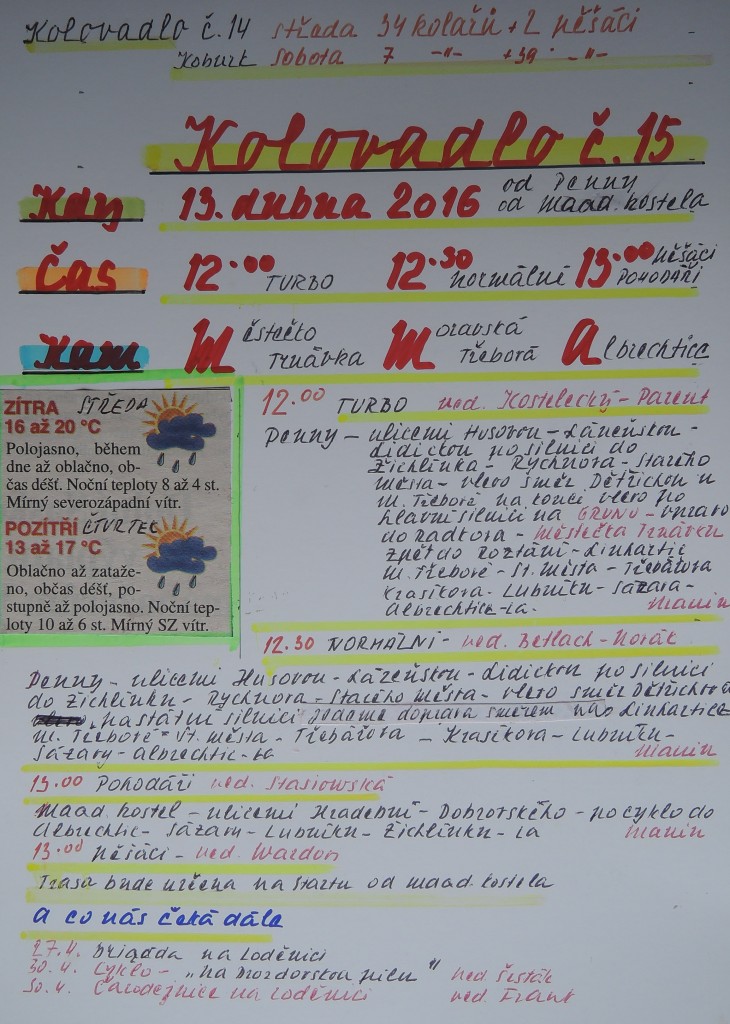 Kolovadlo č.14 středa 34 kolařů + 2 pěšáci
Koburk sobota 7 -"- +39 -"-
Kolovadlo č.15
Kdy 13. dubna 2016 od Penny
od Maad. kostela
Čas 12.00 TURBO 12.30 normální 13.00 pěšáci
POHODÁŘI
Kam Městečko Trnávka Moravská Třebová Albrechtice
ZÍTRA STŘEDA
16 až 20 °C
Polojasno, během
dne až oblačno, ob-
čas déšť. Noční teploty 8 až 4 st.
Mírný severozápadní vítr.
POZÍTŘÍ ČTVRTEK
13 až 17 °C
Oblačno až zataže-
no, občas déšť, po-
stupně až polojasno. Noční tep-
loty 10 až 6 st. Mírný SZ vítr.
12.00 TURBO ved. Kostelecký - Parent
Penny - ulicemi Husovou - Lázeňskou -
Lidickou po silnici do
Žichlínka - Rychnova - Starého
Města - vlevo směr Dětřichov u
M. Třebové na konci vlevo po
hlavní silnici na GRUNU - vpravo
do Radkova - Městečka Trnávku
zpět do Rozstání - Linhartic
M. Třebové - St. Města - Třebařova
Krasíkova - Lubníku - Sázava -
Albrechtic - La. Manin
12.30 NORMÁLNÍ - ved. Betlach - Novák
Penny - ulicemi Husovou - Lázeňskou - Lidickou po silnici
do Žichlínku - Rychnova - Starého města - vlevo směr Dětřichova
na státní silnici jedeme doprava směrem na Linhartice
M. Třebové - St. města - Třebařova - Krasíkova - Lubníku -
Sázavy - Albrechtic - La Manin
13.00 Pohodáři ved. Stasiowská
Maad. kostel - ulicemi Hradební - Dobrovského - po cyklo do
Albrechtic - Sázavy - Lubníku - Žichlínku - La Manin
13.00 pěšáci - ved. Wardon
Trasa bude určena na startu od maad. kostela
A co nás čeká dále
27.4. Brigáda na Loděnici
30.4. Cyklo - „na Drozdovskou pilu" ved. Šesták
30.4. Čarodějnice na loděnici ved. Frant